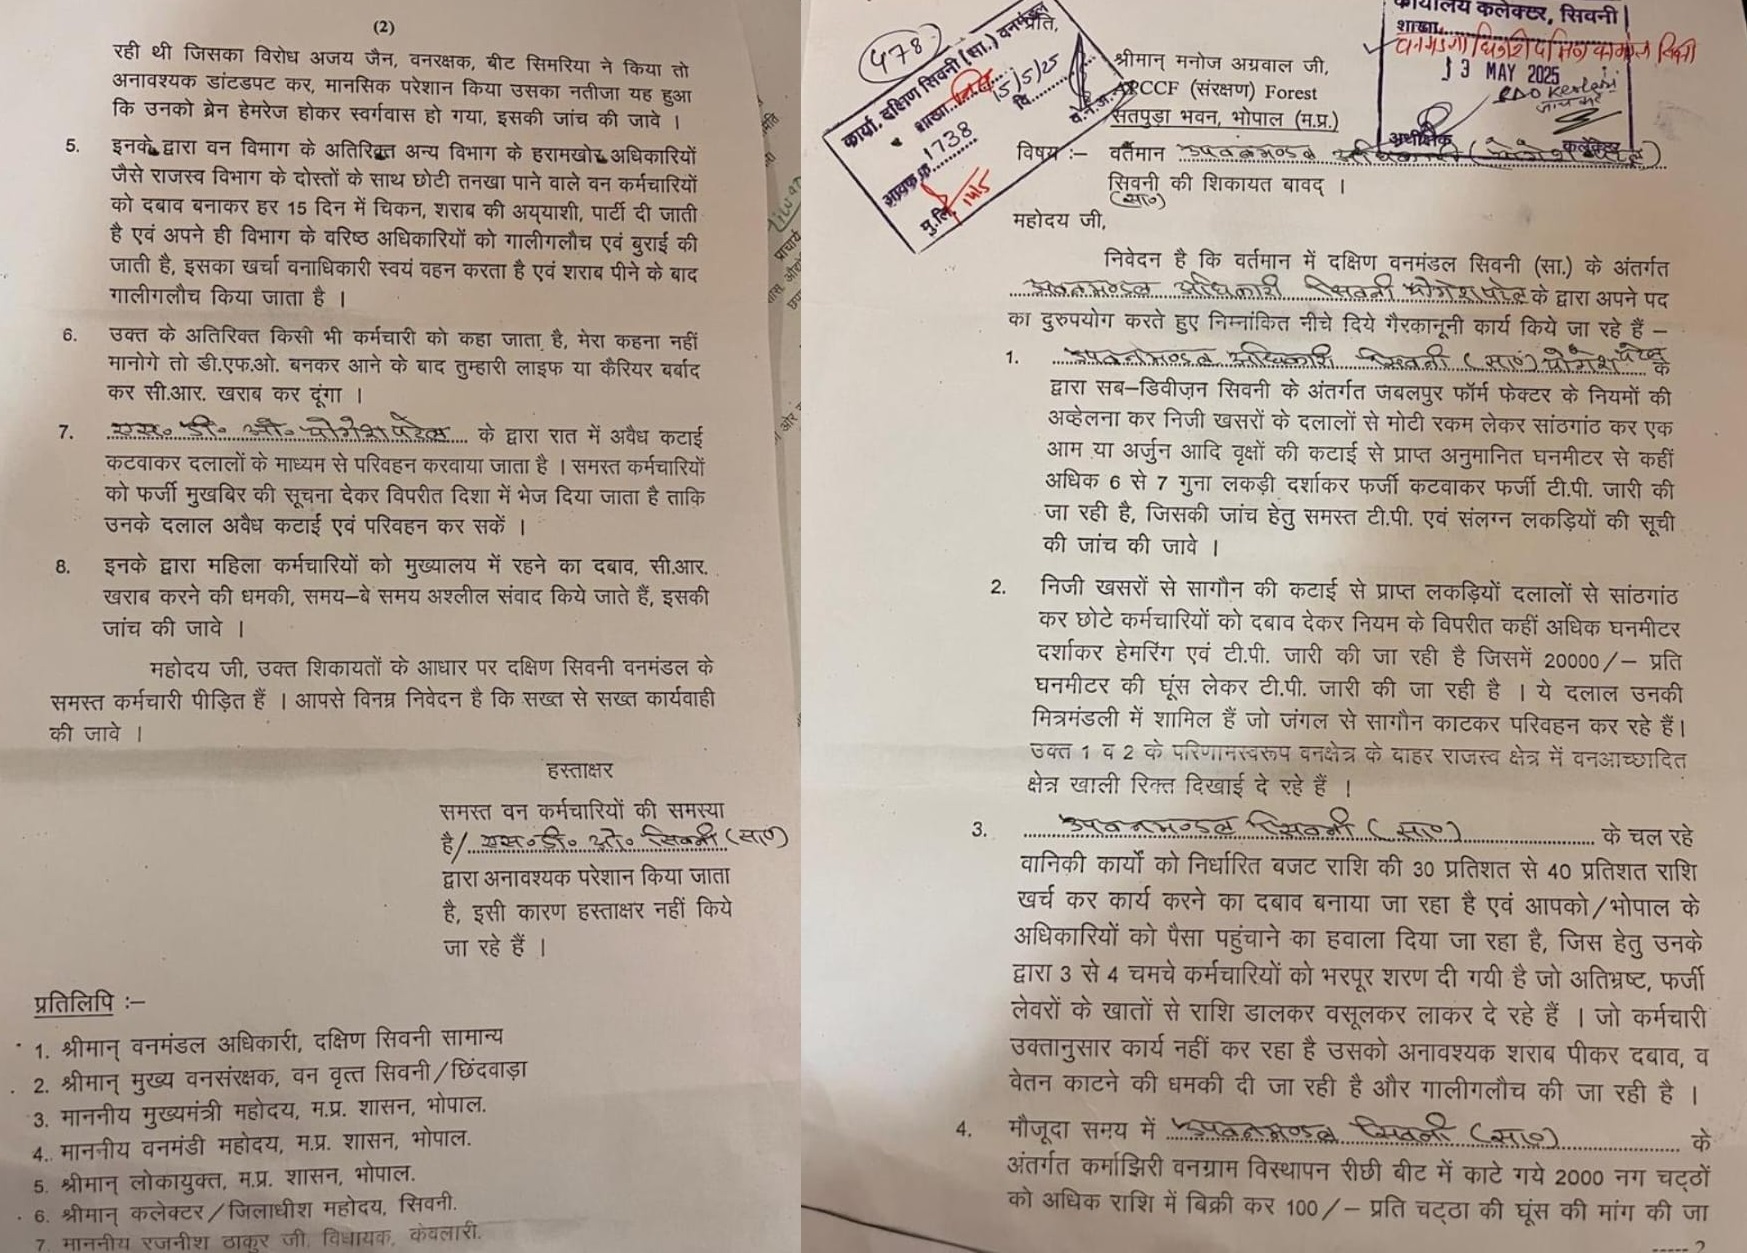 प्रति,
श्रीमान् मनोज अग्रवाल जी,
APCCF (संरक्षण) Forest
सतपुड़ा भवन, भोपाल (म.प्र.)
कार्यालय कलेक्टर, सिवनी
शाखा
13 MAY 2025
अधीक्षक
कलेक्टर
478
कार्या. दक्षिण सिवनी (सा.) वनमण्डल
शाखा
15/5/25
आवक क्र. 1738
मु.लि.
14/5
विषय :– वर्तमान उपवनमण्डल अधिकारी (योगेश पटेल)
सिवनी की शिकायत बावद् ।
(सा०)
महोदय जी,
निवेदन है कि वर्तमान में दक्षिण वनमंडल सिवनी (सा.) के अंतर्गत
उपवनमण्डल अधिकारी सिवनी योगेश पटेल के द्वारा अपने पद
का दुरुपयोग करते हुए निम्नांकित नीचे दिये गैरकानूनी कार्य किये जा रहे हैं –
1. उपवनमण्डल अधिकारी सिवनी (सा०) योगेश पटेल के
द्वारा सब–डिवीज़न सिवनी के अंतर्गत जबलपुर फॉर्म फेक्टर के नियमों की
अव्हेलना कर निजी खसरों के दलालों से मोटी रकम लेकर सांठगांठ कर एक
आम या अर्जुन आदि वृक्षों की कटाई से प्राप्त अनुमानित घनमीटर से कहीं
अधिक 6 से 7 गुना लकड़ी दर्शाकर फर्जी कटवाकर फर्जी टी.पी. जारी की
जा रही है, जिसकी जांच हेतु समस्त टी.पी. एवं संलग्न लकड़ियों की सूची
की जांच की जावे ।
2. निजी खसरों से सागौन की कटाई से प्राप्त लकड़ियों दलालों से सांठगांठ
कर छोटे कर्मचारियों को दबाव देकर नियम के विपरीत कहीं अधिक घनमीटर
दर्शाकर हेमरिंग एवं टी.पी. जारी की जा रही है जिसमें 20000/– प्रति
घनमीटर की घूंस लेकर टी.पी. जारी की जा रही है । ये दलाल उनकी
मित्रमंडली में शामिल हैं जो जंगल से सागौन काटकर परिवहन कर रहे हैं।
उक्त 1 व 2 के परिणामस्वरूप वनक्षेत्र के बाहर राजस्व क्षेत्र में वनआच्छादित
क्षेत्र खाली रिक्त दिखाई दे रहे हैं ।
3. उपवनमण्डल सिवनी (सा०) के चल रहे
वानिकी कार्यों को निर्धारित बजट राशि की 30 प्रतिशत से 40 प्रतिशत राशि
खर्च कर कार्य करने का दबाव बनाया जा रहा है एवं आपको/भोपाल के
अधिकारियों को पैसा पहुंचाने का हवाला दिया जा रहा है, जिस हेतु उनके
द्वारा 3 से 4 चमचे कर्मचारियों को भरपूर शरण दी गयी है जो अतिभ्रष्ट, फर्जी
लेवरों के खातों से राशि डालकर वसूलकर लाकर दे रहे हैं । जो कर्मचारी
उक्तानुसार कार्य नहीं कर रहा है उसको अनावश्यक शराब पीकर दबाव, व
वेतन काटने की धमकी दी जा रही है और गालीगलौच की जा रही है ।
4. मौजूदा समय में उपवनमण्डल सिवनी (सा०) के
अंतर्गत कर्माझिरी वनग्राम विस्थापन रीछी बीट में काटे गये 2000 नग चट्ठों
को अधिक राशि में बिक्री कर 100/– प्रति चट्ठा की घूंस की मांग की जा
(2)
रही थी जिसका विरोध अजय जैन, वनरक्षक, बीट सिमरिया ने किया तो
अनावश्यक डांटडपट कर, मानसिक परेशान किया उसका नतीजा यह हुआ
कि उनको ब्रेन हेमरेज होकर स्वर्गवास हो गया, इसकी जांच की जावे ।
5. इनके द्वारा वन विभाग के अतिरिक्त अन्य विभाग के हरामखोर अधिकारियों
जैसे राजस्व विभाग के दोस्तों के साथ छोटी तनखा पाने वाले वन कर्मचारियों
को दबाव बनाकर हर 15 दिन में चिकन, शराब की अय्याशी, पार्टी दी जाती
है एवं अपने ही विभाग के वरिष्ठ अधिकारियों को गालीगलौच एवं बुराई की
जाती है, इसका खर्चा वनाधिकारी स्वयं वहन करता है एवं शराब पीने के बाद
गालीगलौच किया जाता है ।
6. उक्त के अतिरिक्त किसी भी कर्मचारी को कहा जाता है, मेरा कहना नहीं
मानोगे तो डी.एफ.ओ. बनकर आने के बाद तुम्हारी लाइफ या कैरियर बर्बाद
कर सी.आर. खराब कर दूंगा ।
7. एस० डी० ओ० योगेश पटेल के द्वारा रात में अवैध कटाई
कटवाकर दलालों के माध्यम से परिवहन करवाया जाता है । समस्त कर्मचारियों
को फर्जी मुखबिर की सूचना देकर विपरीत दिशा में भेज दिया जाता है ताकि
उनके दलाल अवैध कटाई एवं परिवहन कर सकें ।
8. इनके द्वारा महिला कर्मचारियों को मुख्यालय में रहने का दबाव, सी.आर.
खराब करने की धमकी, समय–बे समय अश्लील संवाद किये जाते हैं, इसकी
जांच की जावे ।
महोदय जी, उक्त शिकायतों के आधार पर दक्षिण सिवनी वनमंडल के
समस्त कर्मचारी पीड़ित हैं । आपसे विनम्र निवेदन है कि सख्त से सख्त कार्यवाही
की जावे ।
हस्ताक्षर
समस्त वन कर्मचारियों की समस्या
है/ एस० डी० ओ० सिवनी (सा०)
द्वारा अनावश्यक परेशान किया जाता
है, इसी कारण हस्ताक्षर नहीं किये
जा रहे हैं ।
प्रतिलिपि :–
1. श्रीमान् वनमंडल अधिकारी, दक्षिण सिवनी सामान्य
2. श्रीमान् मुख्य वनसंरक्षक, वन वृत्त सिवनी/छिंदवाड़ा
3. माननीय मुख्यमंत्री महोदय, म.प्र. शासन, भोपाल.
4. माननीय वनमंडी महोदय, म.प्र. शासन, भोपाल.
5. श्रीमान् लोकायुक्त, म.प्र. शासन, भोपाल.
6. श्रीमान् कलेक्टर/जिलाधीश महोदय, सिवनी.
7. माननीय रजनीश ठाकुर जी, विधायक, केवलारी.